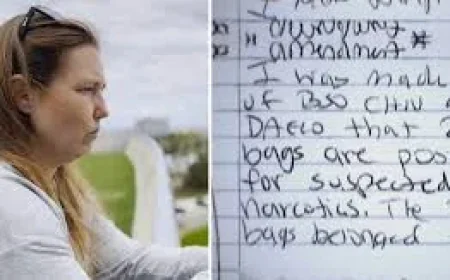 * * amendment *
I was made
of BSO CHIV
DAECO that 2
bags are pos
for suspected
narcotics. The
bags belonged